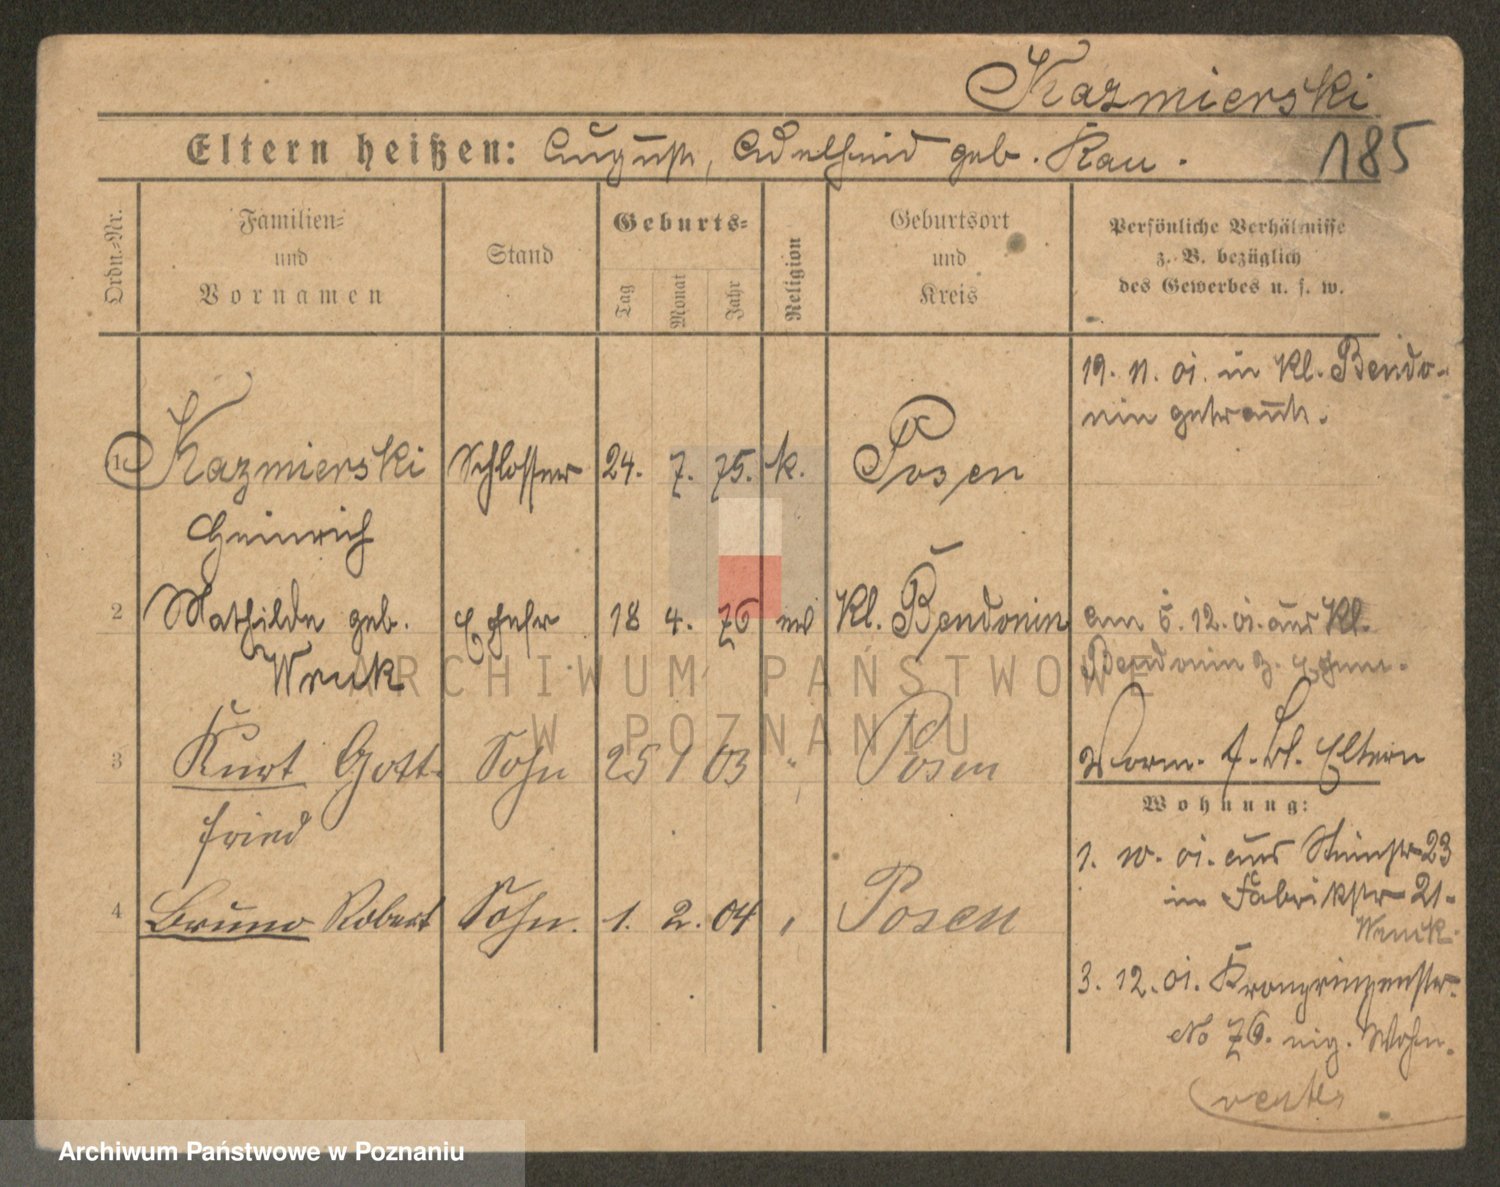 Kazmierski
Eltern heißen: August, Adelheid geb. Rau.
185
Ordn.-Nr.
Familien-
und
Vornamen
Stand
Geburts-
Tag
Monat
Jahr
Religion
Geburtsort
und
Kreis
Persönliche Verhältnisse
z. B. bezüglich
des Gewerbes u. s. w.
19. 11. 01. in Kl. Bendo-
nin getraut.
1 Kazmierski Schlosser 24. 7. 75. k. Posen
Heinrich
2 Mathilde geb. Ehefr 18 4. 76 ev Kl. Bendonin
Wruck
am 5. 12. 01. aus Kl.
Bendonin z. Ehem.
3 Kurt Gott- Sohn 25 1 03 " Posen
fried
Worm. f. bl. Eltern
Wohnung:
4 Bruno Robert Sohn. 1. 2. 04 Posen
1. 10. 01. aus 23
in Fabrikstr 21.
Wruck.
3. 12. 01. Kronprinzenstr.
No 76. eig. Wohn.
ARCHIWUM PAŃSTWOWE
W POZNANIU
Archiwum Państwowe w Poznaniu